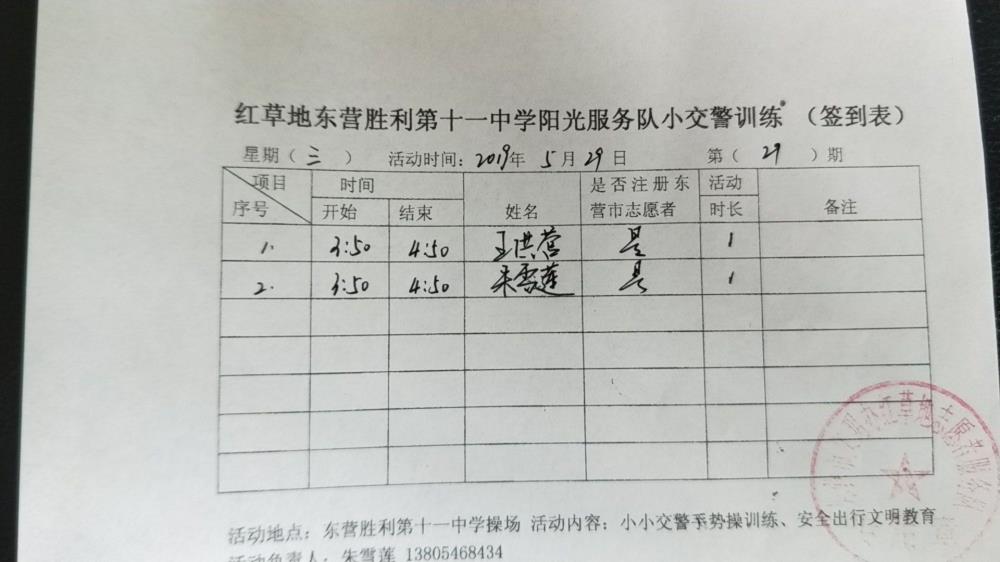 红草地东营胜利第十一中学阳光服务队小交警训练 (签到表)
星期(三) 活动时间: 2019年 5月29日 第(29)期
项目 时间 姓名 是否注册东 活动 备注
序号 开始 结束 营市志愿者 时长
1. 3:50 4:50 王洪营 是 1
2. 3:50 4:50 朱雪莲 是 1
红草地志愿者服务
活动地点: 东营胜利第十一中学操场 活动内容: 小小交警手势操训练、安全出行文明教育
活动负责人: 朱雪莲 13805468434